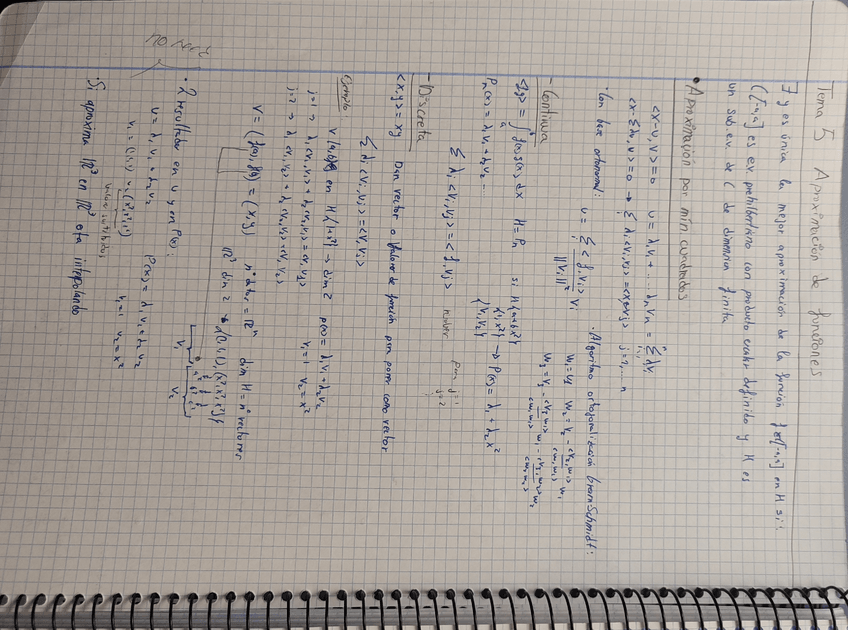 Tema 5 Aproximación de funciones
∃ y es única la mejor aproximación de la función f en H si:
C[-a,a] es ev prehilbertiano con producto escalar definido y H es
un sub. ev. de C de dimensión finita
• Aproximación por mín cuadrados
<x-u,v>=0 u = λ₁v₁+....λₙvₙ = Σλᵢvᵢ
<x-Σλᵢvᵢ,v>=0 → Σλᵢ<vᵢ,vⱼ>=<x,vⱼ> j=1,...n
·Con base ortonormal: u = Σ <f,vᵢ>/||vᵢ||² vᵢ
·Algoritmo ortogonalización Gram Schmidt:
w₁=v₁ w₂=v₂ - <v₂,w₁>/<w₁,w₁> w₁
w₃=v₃ - <v₃,w₁>/<w₁,w₁> w₁ - <v₃,w₂>/<w₂,w₂> w₂
- Continua
<f,g> = ∫ f(x)g(x)dx H=Pₙ si H{a+bx²}
Pₙ(x) = λ₁v₁+λ₂v₂... {1,x²} → P(x)=λ₁+λ₂x²
{v₁,v₂}
Σλᵢ<vᵢ,vⱼ>=<f,vⱼ> para j=1
j=2
- Discreta
<x,y> = xy Dan vector o valores de función por poner como vector
Σλᵢ<vᵢ,vⱼ>=<v,vⱼ>
Ejemplo en H{1+x²} → dim 2 p(x)=λ₁v₁+λ₂v₂
j=1 → λ₁<v₁,v₁>+λ₂<v₂,v₁>=<v,v₁> v₁=1 v₂=x²
j=2 → λ₁<v₁,v₂>+λ₂<v₂,v₂>=<v,v₂>
V = (f(a),f(b)) = (x,y) nº datos = ℝⁿ dim H = nº vectores
ℝ³ dim 2 {(1,1,1),(x²,x²,x²)}
v₁ v₂
• Resultado en u y en P(x):
u=λ₁v₁+λ₂v₂ P(x)=λ₁v₁+λ₂v₂
v₁=(1,1,1) v₂=(x²,x²,x²) v₁=1 v₂=x²
Si aproxima ℝ³ en ℝ³ esta interpolando